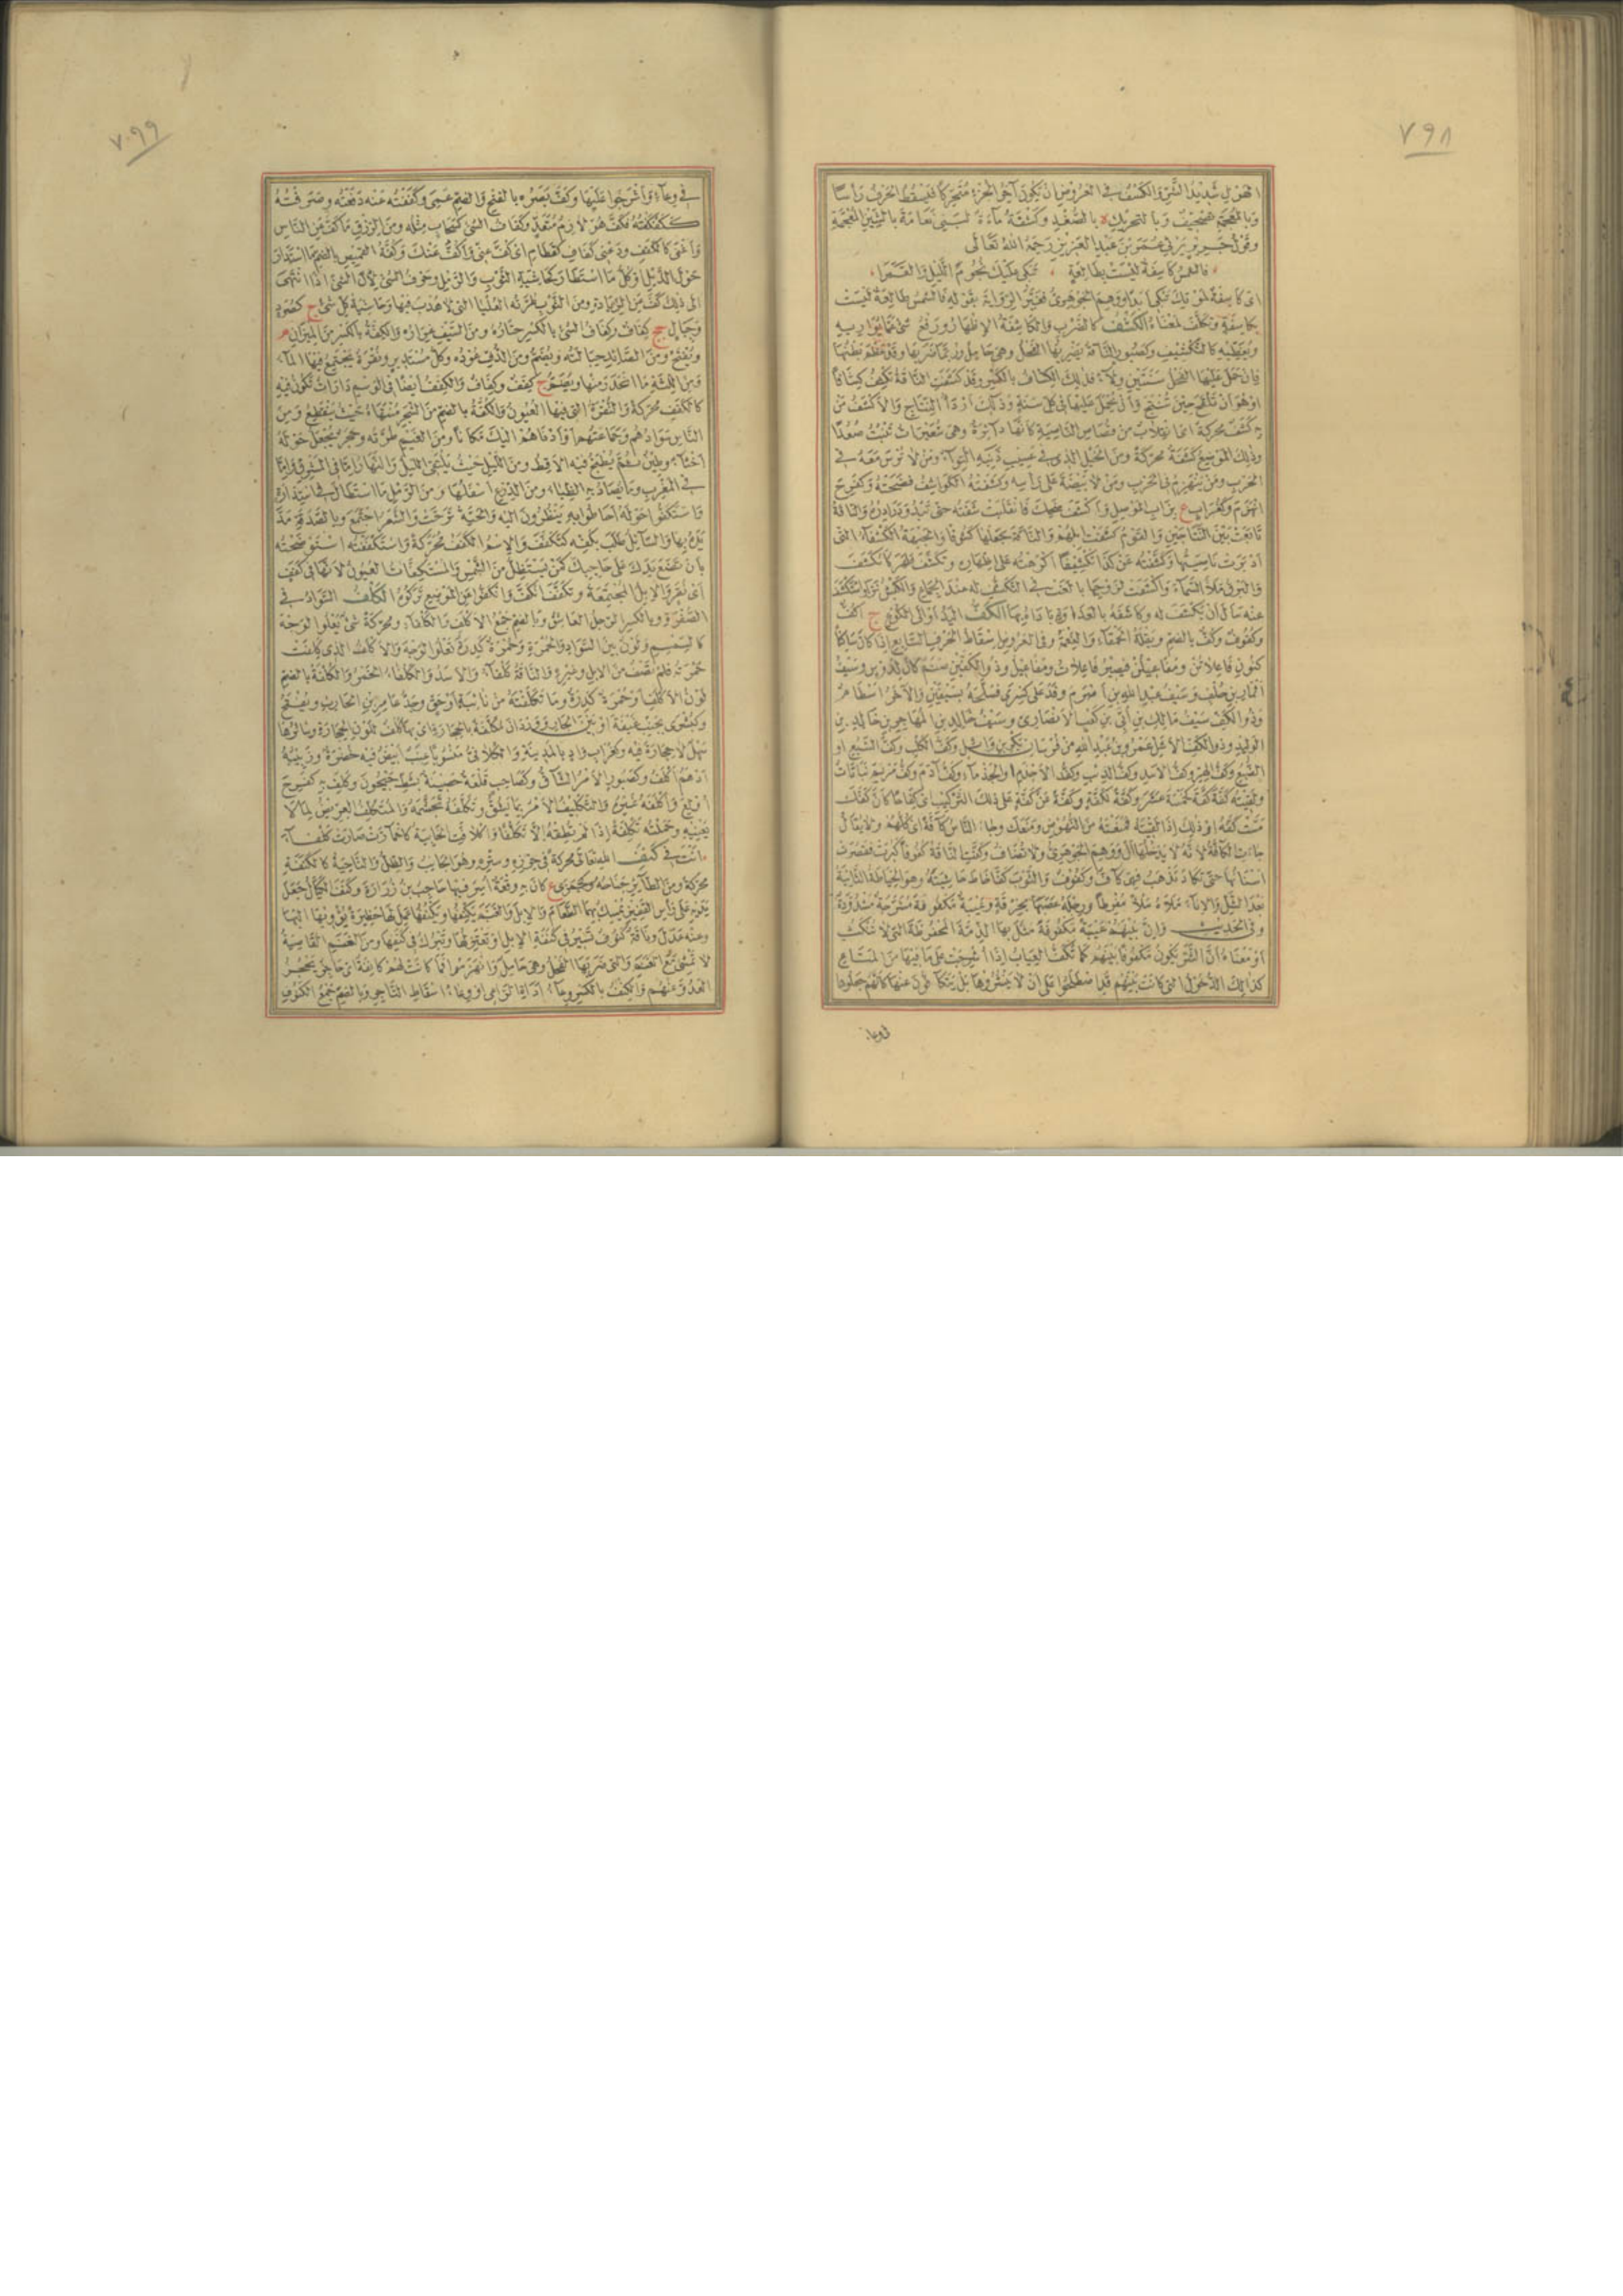 ٧٩٨
الهول شديد الشر والكسف في العروض ان يكون آخر الجزء متحركا فيسقط الحرف رأسا
وبالمعجمة تصحيف وبالتحريك ة بالصغد وكسفة ماءة لبني نعامة بالشين المعجمة
وقول جرير يرثي عمر بن عبد العزيز رحمه الله تعالى
فالشمس كاسفة ليست بطالعة تبكي عليك نجوم الليل والقمرا
اي كاسفة لموتك تبكي ابدا ووهم الجوهري فغير الرواية بقوله فالشمس طالعة ليست
بكاسفة وتكلف لمعناه الكشف كالضرب والكاشفة الاظهار ورفع شيء عما يواريه
ويغطيه كالتكشيف وكصبور الناقة يضربها الفحل وهي حامل وربما ضربها وقد عظم بطنها
فان حمل عليها الفحل سنتين ولاء فذلك الكشاف بالكسر وقد كشفت الناقة تكشف كشافا
او هو ان تلقح حين تنتج او ان يحمل عليها في كل سنة وذلك اردأ النتاج والاكشف من
به كشف محركة اي انقلاب من قصاص الناصية كانها دائرة وهي شعيرات تنبت صعدا
وذلك الموضع كشفة محركة ومن الخيل الذي في عسيب ذنبه التواء ومن لا ترس معه في
الحرب ومن ينهزم في الحرب ومن لا بيضة على رأسه وكشفته الكواشف فضحته وكفرح
انهزم وكغراب ع بزاب الموصل واكشف ضحك فانقلبت شفته حتى تبدو درادره والناقة
تابعت بين النتاجين والقوم كشفت ابلهم والناقة جعلها كشوفا والجبهة الكشفاء التي
ادبرت ناصيتها وكشفته عن كذا تكشيفا اكرهته على اظهاره وتكشف ظهر كانكشف
والبرق ملأ السماء واكتشفت لزوجها بالغت في التكشف له عند الجماع والكبش نزا واستكشف
عنه سأل ان يكشف له وكاشفه بالعداوة باداه بها الكف اليد او الى الكوع ج اكف
وكفوف وكف بالضم وبقلة الحمقاء والنعمة وفي العروض اسقاط الحرف السابع اذا كان ساكنا
كنون فاعلاتن ومفاعيلن فيصير فاعلات ومفاعيل وذو الكفين صنم كان لدوس وسيف
انمار بن خلف وسيف عبد الله بن اصرم وفد على كسرى فسلحه بسيفين والآخر اسطام
وذو الكف سيف مالك بن ابي بن كعب الانصاري وسيف خالد بن المهاجر بن خالد بن
الوليد وذو الكف الاشل عمرو بن عبد الله من فرسان بكر بن وائل وكف الكلب وكف السبع او
الضبع وكف الهر وكف الاسد وكف الذئب وكف الاجذم او الجذماء وكف آدم وكف مريم نباتات
ولقيته كفة كفة كخمسة عشر وكفة لكفة وكفة عن كفة على فك التركيب اي كفاحا كان كفك
مست كفه او ذلك اذا لقيته فمنعته من النهوض ومنعك وجاء الناس كافة اي كلهم ولا يقال
جاءت الكافة لانه لا يدخلها ال ووهم الجوهري ولا تضاف وكفت الناقة كفوفا كبرت فقصرت
اسنانها حتى تكاد تذهب فهي كاف وكفوف والثوب كفا خاط حاشيته وهو الخياطة الثانية
بعد الشل والاناء ملأه ملأ مفرطا ورجله عصبها بخرقة وعيبة مكفوفة مشرجة مشدودة
وفي الحديث وان بينهم عيبة مكفوفة مثل بها الذمة المحفوظة التي لا تنكث
او معناه ان الشر يكون مكفوفا بينهم كما تكف العياب اذا اشرجت على ما فيها من المتاع
كذلك الذحول التي كانت بينهم قد اصطلحوا على ان لا ينشروها بل يتكافون عنها كانهم جعلوها
في وعاء
٧٩٩
في وعاء واشرجوا عليها وكف بصره بالفتح والضم عمي وكففته عنه دفعته وصرفته
ككفكفته فكف هو لازم متعد وكفاف الشيء كسحاب مثله ومن الرزق ما كف عن الناس
واغنى كالكفف ودعني كفاف كقطام اي كف عني واكف عنك وكفة القميص بالضم ما استدار
حول الذيل او كل ما استطال كحاشية الثوب والرمل وحرف الشيء لان الشيء اذا انتهى
الى ذلك كف عن الزيادة ومن الثوب طرته العليا التي لا هدب فيها وحاشية كل شيء ج كصرد
وجبال جج كفاف وكفاف الشيء بالكسر حتاره ومن السيف غراره والكفة بالكسر من الميزان م
ويفتح ومن الصائد حبالته ويضم ومن الدف عوده وكل مستدير ونقرة يجتمع فيها الماء
ومن اللثة ما انحدر منها ويضم ج كفف وكفاف والكفف ايضا في الوشم دارات تكون فيه
كالكفف محركة والنقرة التي فيها العيون والكفة بالضم من الشجر منتهاه حيث ينقطع ومن
الناس سوادهم وجماعتهم او ادناهم اليك مكانا ومن الغيم طرته وحجر يجعل حوله
اخثاء وطين ثم يطبخ فيه الاقط ومن الليل حيث يلتقي الليل والنهار اما في المشرق واما
في المغرب وما يصاد به الظباء ومن الدرع اسفلها ومن الرمل ما استطال في استدارة
واستكفوا حوله احاطوا به ينظرون اليه والحية ترحت والشعر اجتمع وبالصدقة مد
يده بها والسائل طلب بكفه كتكفف والاسم الكفف محركة واستكففته استوضحته
بان تضع يدك على حاجبك كمن يستظل من الشمس والمستكفات العيون لانها في كفف
اي نقر والابل المجتمعة وتكفف انكف وانكفوا عن الموضع تركوه الكلف السواد في
الصفرة وبالكسر الرجل العاشق وبالضم جمع الاكلف والكلفاء ومحركة شيء يعلو الوجه
كالسمسم ولون بين السواد والحمرة وحمرة كدرة تعلو الوجه والاكلف الذي كلفت
حمرته فلم تصف من الابل وغيره والناقة كلفاء والاسد والكلفاء الخمر والكلفة بالضم
لون الاكلف او حمرة كدرة وما تكلفته من نائبة او حق وجد عامر بن الحارث ويفتح
وكبشرى بجنب غيقة او بين الجار وودان مكلفة بالحجارة اي بها كلف للون الحجارة وسائرها
سهل لا حجارة فيه وكغراب واد بالمدينة والكلافي منسوبا عنب ابيض فيه خضرة وزبيبه
ادهم اكلف وكصبور الامر الشاق وكصاحب قلعة حصينة بشط جيحون وكلف به كفرح
اولع واكلفه غيره والتكليف الامر بما يشق وتكلفه تجشمه والمتكلف العريض لما لا
يعنيه وحملته تكلفة اذا لم تطقه الا تكلفا واكلافت الخابية كاحمارت صارت كلفاء
انت في كنف الله تعالى محركة في حرزه وستره وهو الجانب والظل والناحية كالكنفة
محركة ومن الطائر جناحه وكجمزى ع كان به وقعة اسر فيها حاجب بن زرارة وكنف الكيال جعل
يديه على رأس القفيز يمسك بهما الطعام والابل والغنم يكنفها ويكنفها عمل لها حظيرة يؤويها اليها
وعنه عدل وناقة كنوف تسير في كنفة الابل او تعتزلها وتبرك في كنفها ومن الغنم القاصية
لا تمشي مع الغنم والتي ضربها الفحل وهي حامل وانهزموا فما كانت لهم كانفة اي حاجز يحجز
العدو عنهم والكنف بالكسر وعاء اداة الراعي او وعاء اسقاط التاجر وبالضم جمع الكنوف